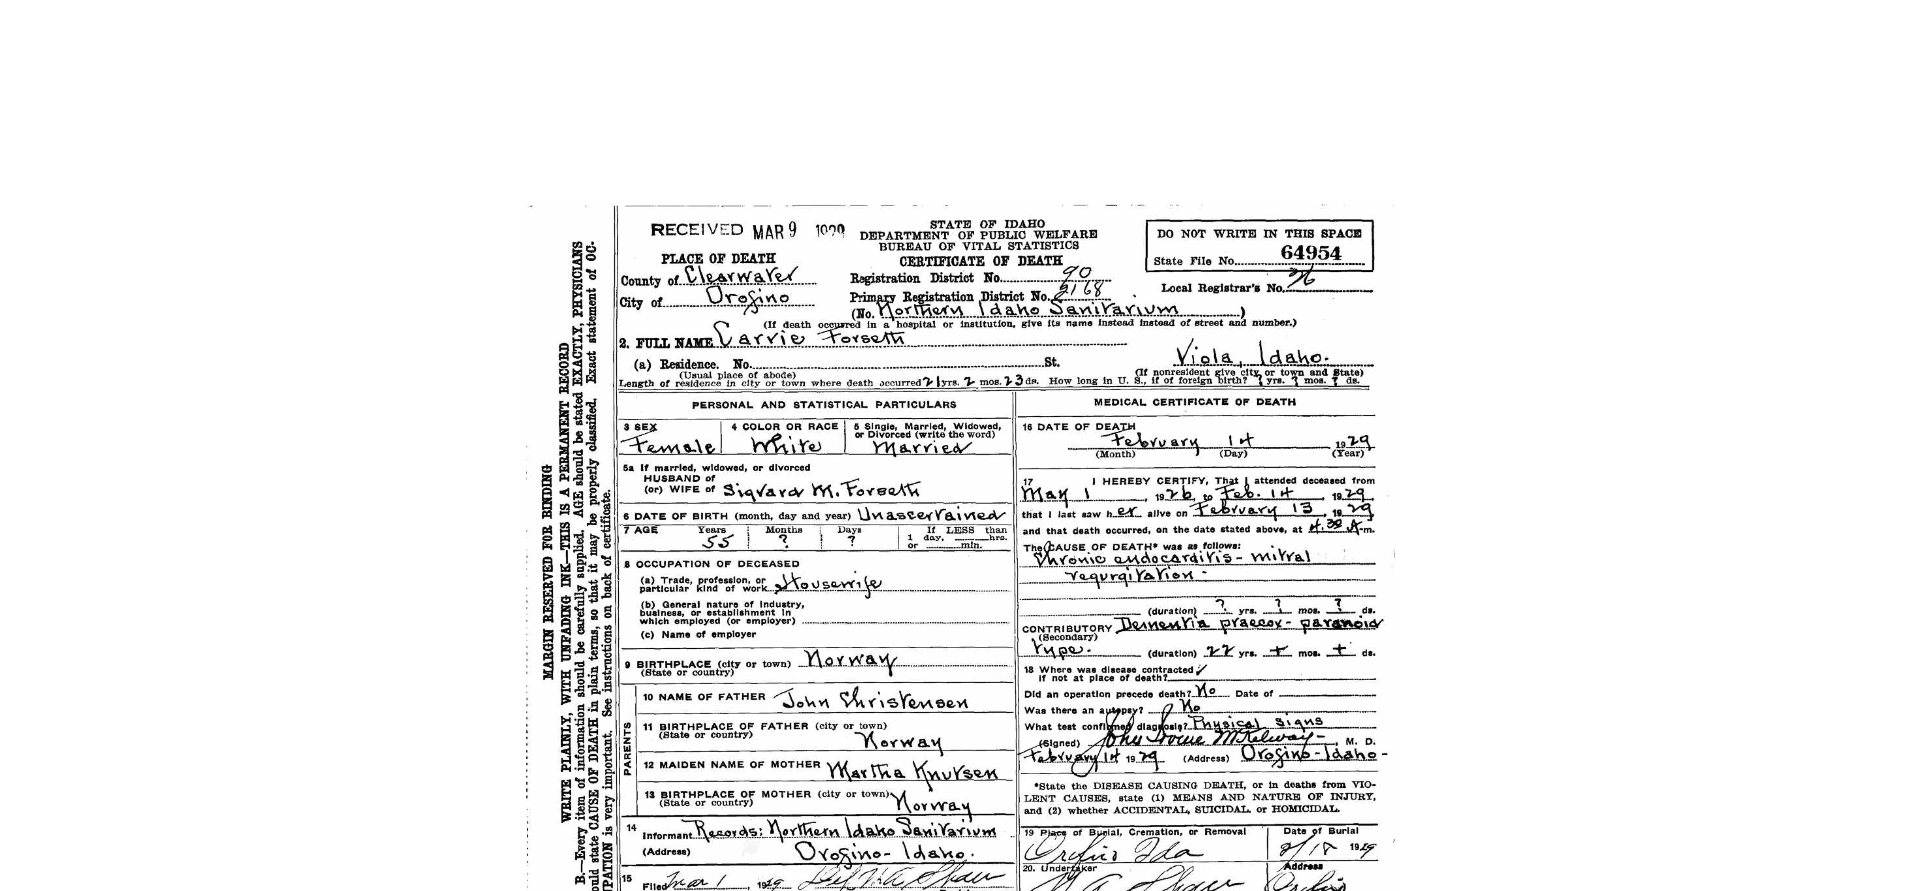 RECEIVED MAR 9 1929
STATE OF IDAHO
DEPARTMENT OF PUBLIC WELFARE
BUREAU OF VITAL STATISTICS
CERTIFICATE OF DEATH
DO NOT WRITE IN THIS SPACE
State File No. 64954
Local Registrar's No. 26
PLACE OF DEATH
County of Clearwater
City of Orofino
Registration District No. 90
Primary Registration District No. 2168
(No. Northern Idaho Sanitarium)
(If death occurred in a hospital or institution, give its name instead instead of street and number.)
2. FULL NAME Carrie Forseth
(a) Residence. No. St. Viola, Idaho.
(Usual place of abode) (If nonresident give city or town and State)
Length of residence in city or town where death occurred 21 yrs. 2 mos. 23 ds. How long in U. S., if of foreign birth? ? yrs. ? mos. ? ds.
PERSONAL AND STATISTICAL PARTICULARS
3 SEX
Female
4 COLOR OR RACE
White
5 Single, Married, Widowed,
or Divorced (write the word)
Married
5a If married, widowed, or divorced
HUSBAND of
(or) WIFE of Sigvard M. Forseth
6 DATE OF BIRTH (month, day and year) Unascertained
7 AGE Years Months Days If LESS than
55 ? ? 1 day, hrs.
or min.
8 OCCUPATION OF DECEASED
(a) Trade, profession, or
particular kind of work Housewife
(b) General nature of industry,
business, or establishment in
which employed (or employer)
(c) Name of employer
9 BIRTHPLACE (city or town) Norway
(State or country)
PARENTS
10 NAME OF FATHER John Christensen
11 BIRTHPLACE OF FATHER (city or town)
(State or country) Norway
12 MAIDEN NAME OF MOTHER Martha Knutsen
13 BIRTHPLACE OF MOTHER (city or town)
(State or country) Norway
14
Informant Records: Northern Idaho Sanitarium
(Address) Orofino - Idaho.
15
Filed Mar 1, 1929
MEDICAL CERTIFICATE OF DEATH
16 DATE OF DEATH
February 14 1929
(Month) (Day) (Year)
17 I HEREBY CERTIFY, That I attended deceased from
May 1, 1926, to Feb. 14, 1929
that I last saw her alive on February 13, 1929
and that death occurred, on the date stated above, at 4.30 A.m.
The CAUSE OF DEATH* was as follows:
Chronic endocarditis - mitral
regurgitation -
(duration) ? yrs. ? mos. ? ds.
CONTRIBUTORY Dementia praecox - paranoid
(Secondary)
type. (duration) 22 yrs. + mos. + ds.
18 Where was disease contracted
if not at place of death?
Did an operation precede death? No Date of
Was there an autopsy? No
What test confirmed diagnosis? Physical signs
(Signed) John McKelway -, M. D.
February 14 1929 (Address) Orofino - Idaho -
*State the DISEASE CAUSING DEATH, or in deaths from VIO-
LENT CAUSES, state (1) MEANS AND NATURE OF INJURY,
and (2) whether ACCIDENTAL, SUICIDAL or HOMICIDAL.
19 Place of Burial, Cremation, or Removal
Orofino Ida
Date of Burial
1929
20. Undertaker
Address
MARGIN RESERVED FOR BINDING
WRITE PLAINLY, WITH UNFADING INK—THIS IS A PERMANENT RECORD
B.—Every item of information should be carefully supplied. AGE should be stated EXACTLY, PHYSICIANS
ould state CAUSE OF DEATH in plain terms, so that it may be properly classified. Exact statement of OC-
PATION is very important. See instructions on back of certificate.